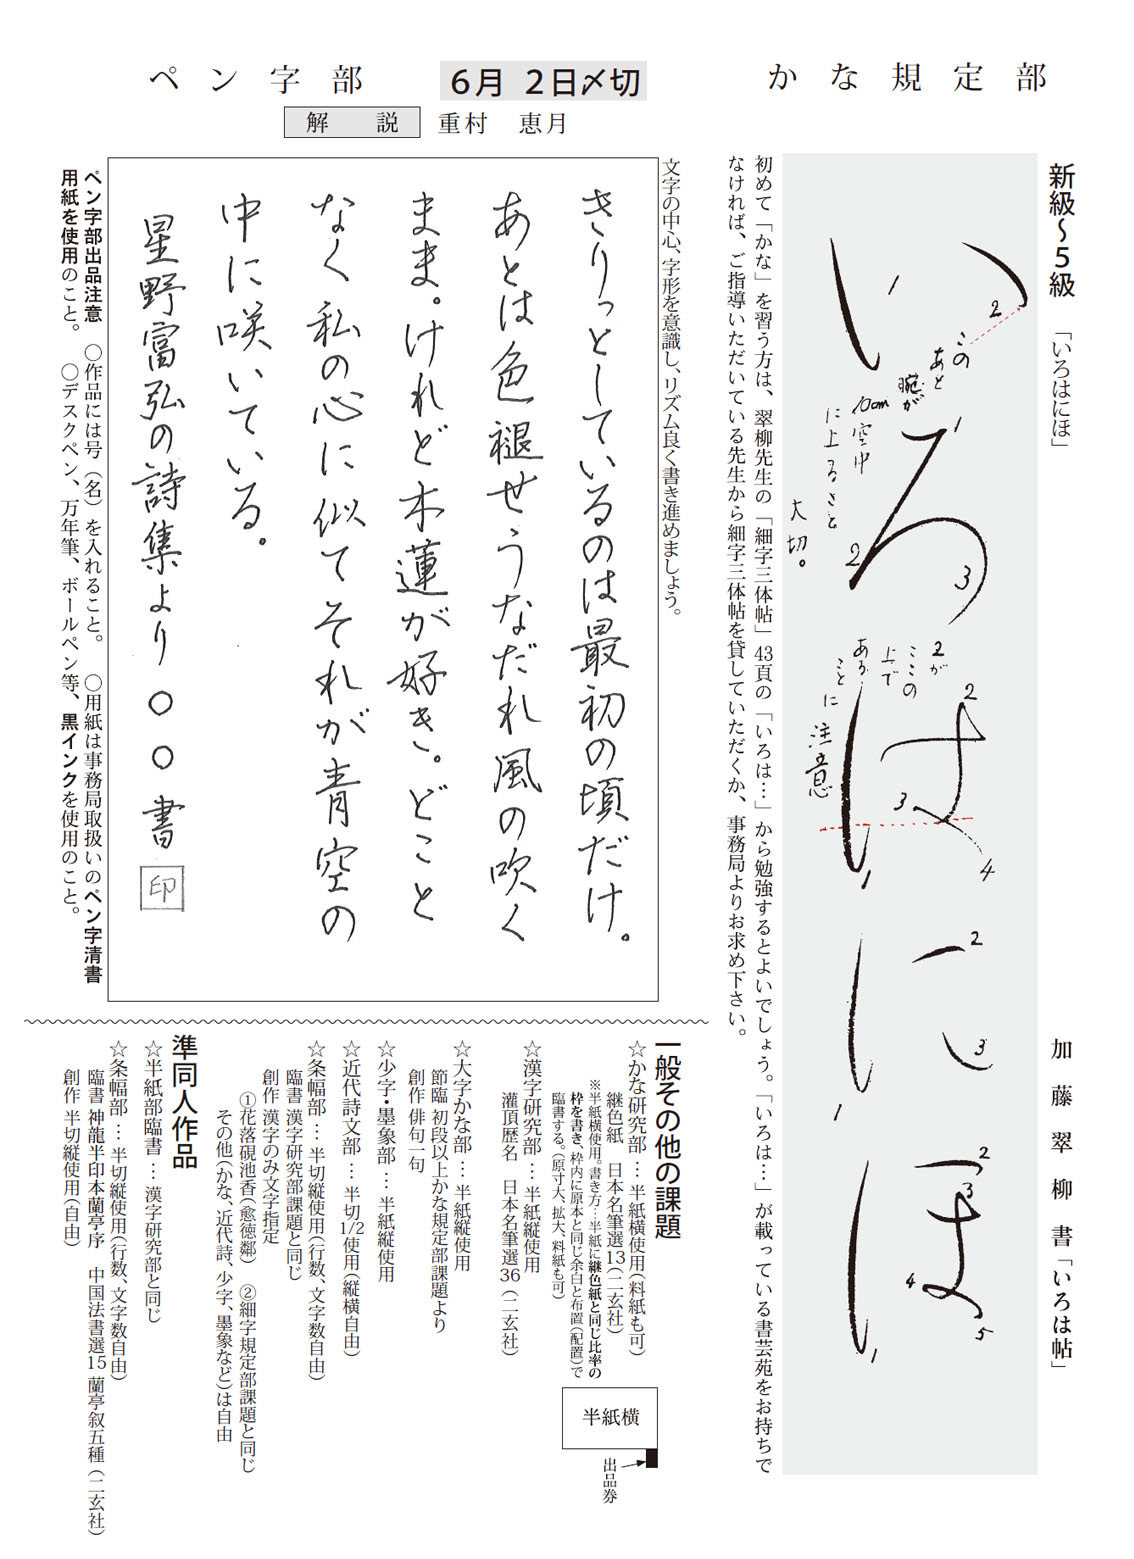 かな規定部
6月 2日〆切
ペン字部
解 説
重村 恵月
新級〜5級 「いろはにほ」
加藤翠柳書「いろは帖」
いろはにほ
1
2
このあと
腕が
10cm空中
に上るさと
大切。
1
2
3
2が
ここの
上で
ある
ことに
注意
2
3
4
1
2
3
1
2
3
4
5
1
初めて「かな」を習う方は、翠柳先生の「細字三体帖」43頁の「いろは…」から勉強するとよいでしょう。「いろは…」が載っている書芸苑をお持ちで
なければ、ご指導いただいている先生から細字三体帖を貸していただくか、事務局よりお求め下さい。
文字の中心、字形を意識し、リズム良く書き進めましょう。
きりっとしているのは最初の頃だけ。
あとは色褪せうなだれ風の吹く
まま。けれど木蓮が好き。どこと
なく私の心に似てそれが青空の
中に咲いている。
星野富弘の詩集より ○○書
印
ペン字部出品注意 ○作品には号(名)を入れること。 ○用紙は事務局取扱いのペン字清書
用紙を使用のこと。 ○デスクペン、万年筆、ボールペン等、黒インクを使用のこと。
一般その他の課題
☆かな研究部…半紙横使用(料紙も可)
継色紙 日本名筆選13(二玄社)
※半紙横使用。書き方…半紙に継色紙と同じ比率の
枠を書き、枠内に原本と同じ余白と布置(配置)で
臨書する。(原寸大、拡大、料紙も可)
半紙横
出品券
☆漢字研究部…半紙縦使用
灌頂歴名 日本名筆選36(二玄社)
☆大字かな部…半紙縦使用
節臨 初段以上かな規定部課題より
創作 俳句一句
☆少字・墨象部…半紙縦使用
☆近代詩文部…半切1/2使用(縦横自由)
☆条幅部…半切縦使用(行数、文字数自由)
臨書 漢字研究部課題と同じ
創作 漢字のみ文字指定
①花落硯池香(愈徳鄰) ②細字規定部課題と同じ
その他(かな、近代詩、少字、墨象など)は自由
準同人作品
☆半紙部臨書…漢字研究部と同じ
☆条幅部…半切縦使用(行数、文字数自由)
臨書 神龍半印本蘭亭序 中国法書選15 蘭亭叙五種(二玄社)
創作 半切縦使用(自由)